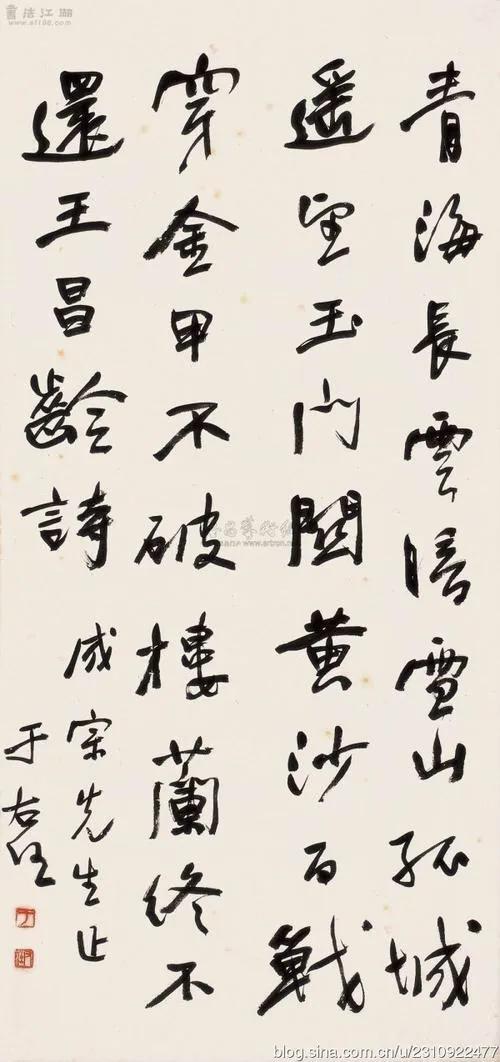 青海長雲暗雪山孤城
遥望玉門關黄沙百戰
穿金甲不破樓蘭終不
還王昌齡詩
成宗先生正
于右任
書法江湖
blog.sina.com.cn/u/2310922477